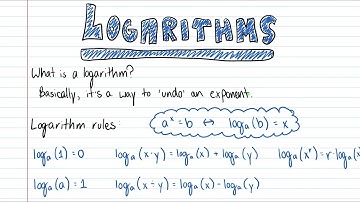 LOGARITHMS
What is a logarithm?
Basically, it's a way to 'undo' an exponent.
Logarithm rules: aˣ = b ↔ logₐ(b) = x
logₐ(1) = 0 logₐ(x·y) = logₐ(x) + logₐ(y) logₐ(xʳ) = r·logₐ(x
logₐ(a) = 1 logₐ(x÷y) = logₐ(x) - logₐ(y)